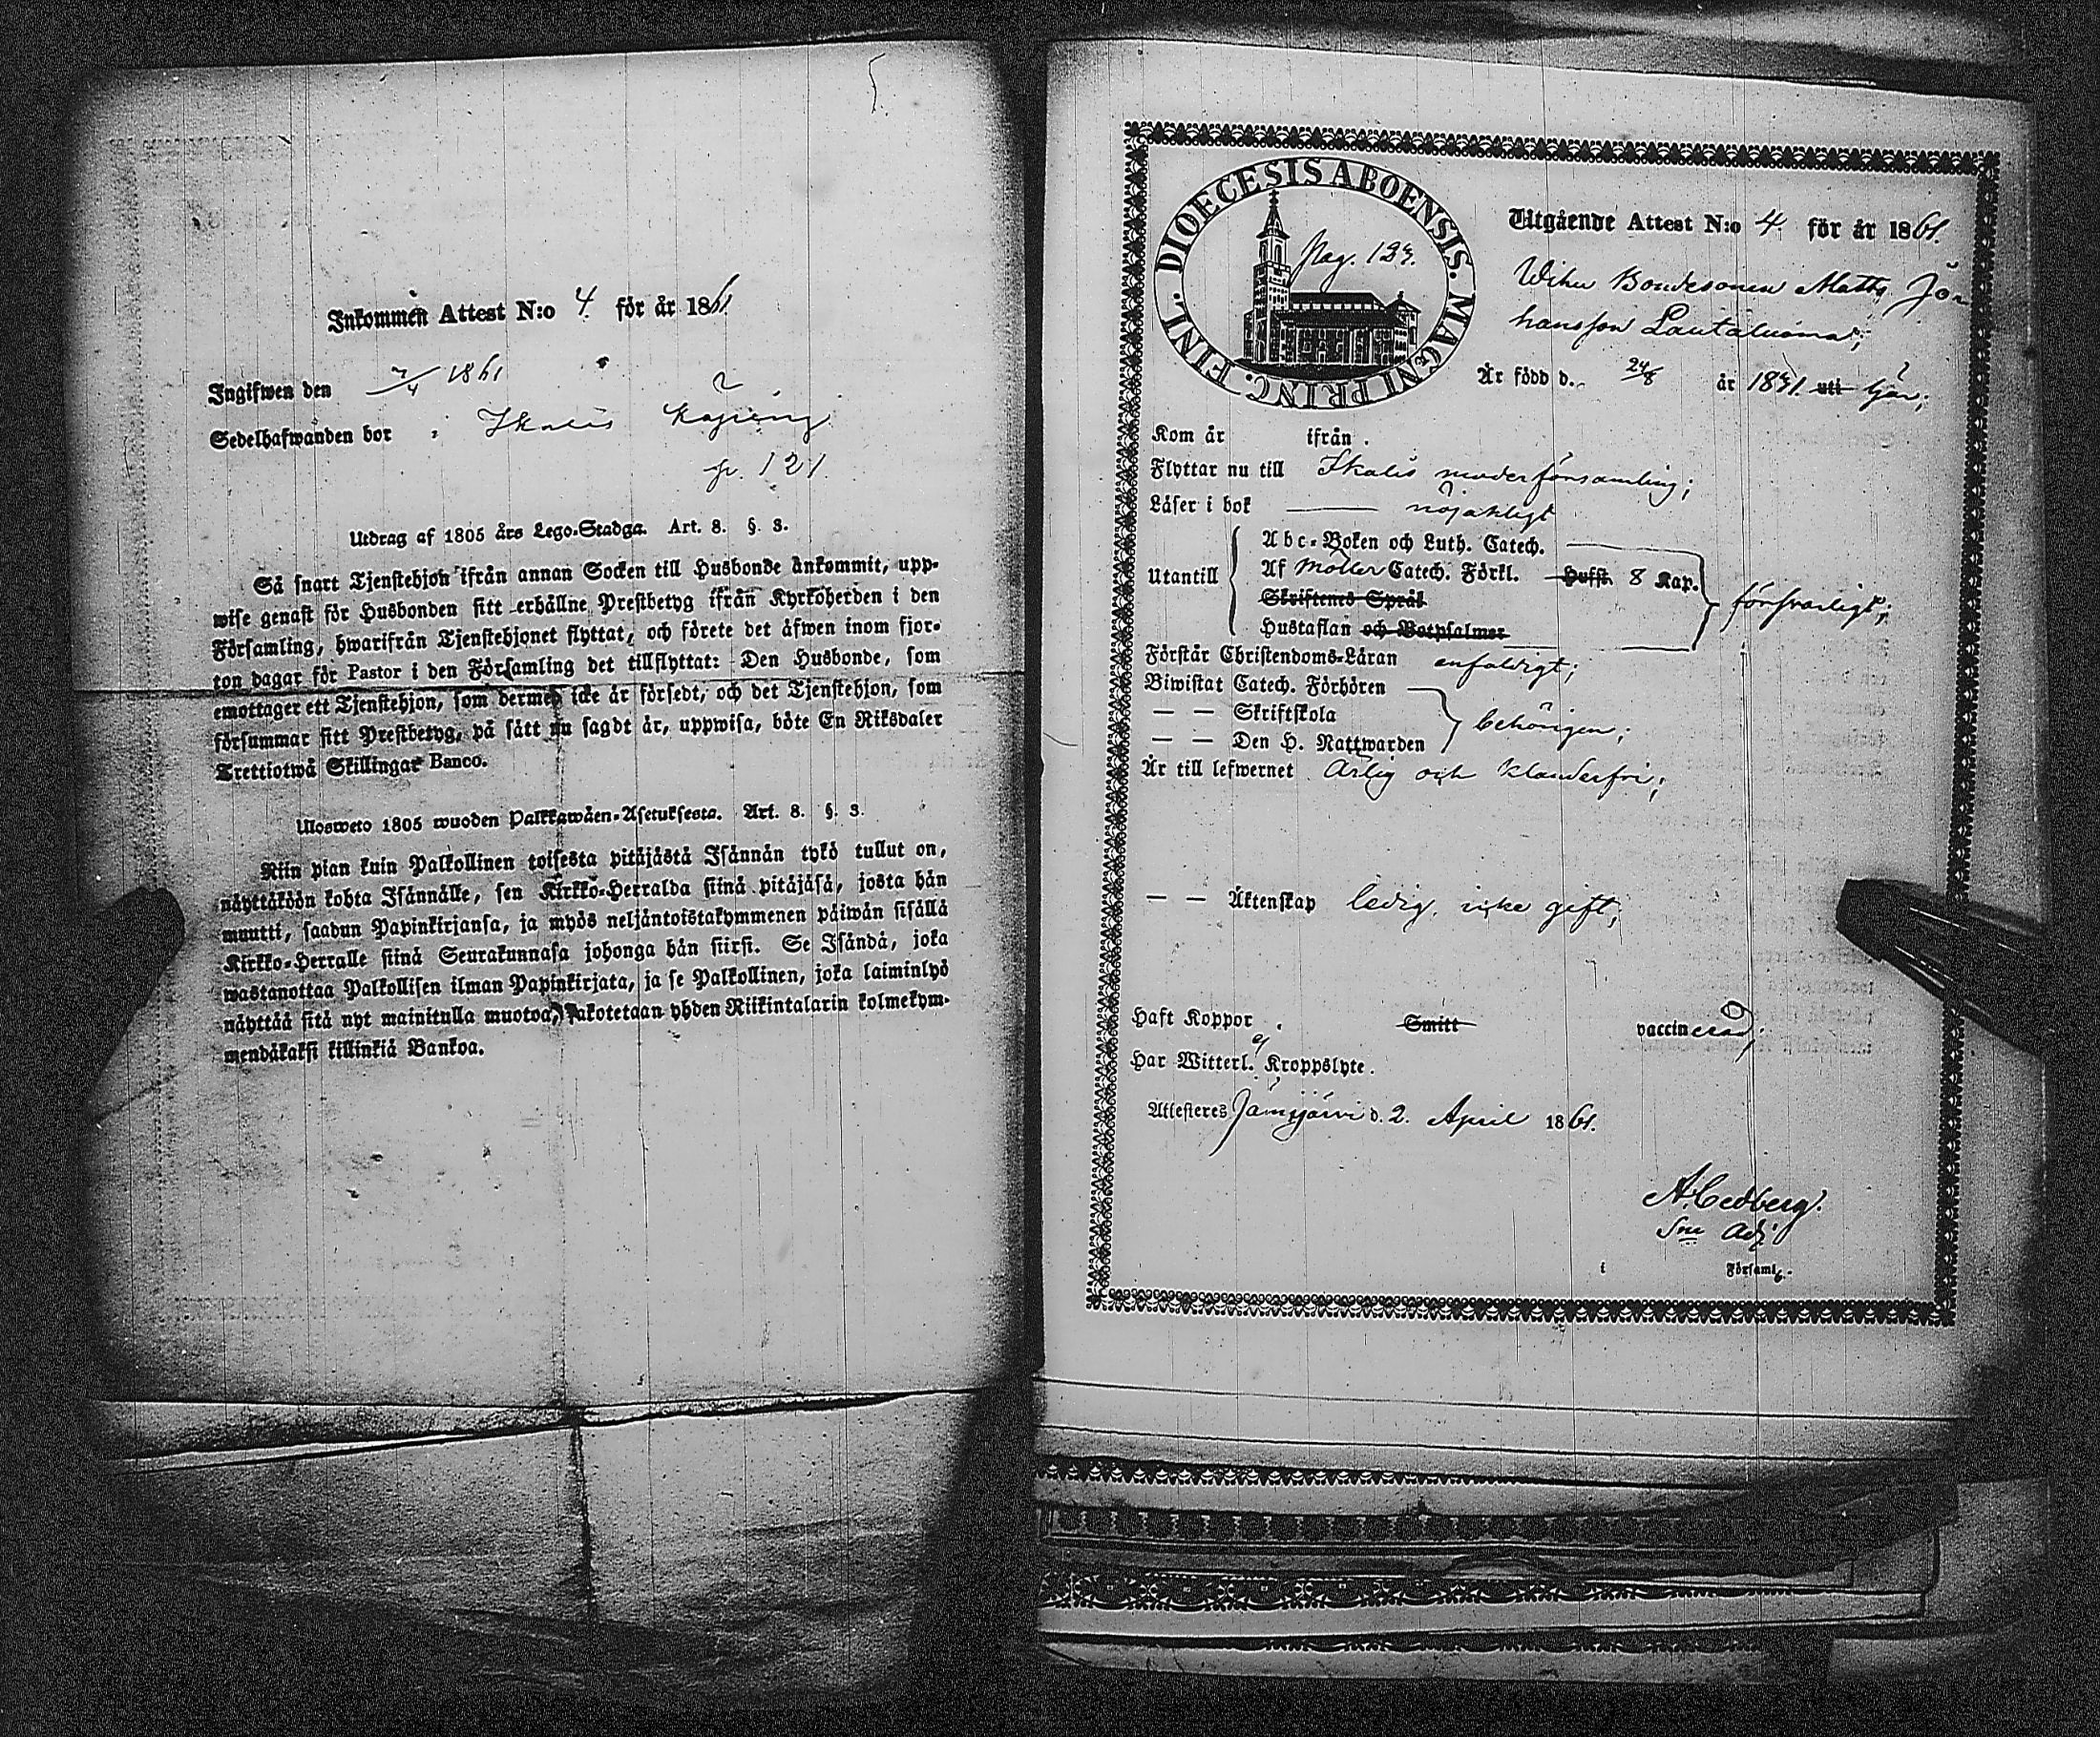 Inkommen Attest N:o 4 för år 1861
Ingifwen den 7/4 1861
Sedelhafwanden bor i Ikalis Köping
p. 121.
Utdrag af 1805 års Lego-Stadga. Art. 8. §. 3.
Så snart Tjenstehjon ifrån annan Socken till Husbonde ankommit, upp-
wise genast för Husbonden sitt erhållne Prestbetyg ifrån Kyrkoherden i den
Församling, hwarifrån Tjenstehjonet flyttat, och förete det äfwen inom fjor-
ton dagar för Pastor i den Församling det tillflyttat: Den Husbonde, som
emottager ett Tjenstehjon, som dermed icke är försedt, och det Tjenstehjon, som
försummar sitt Prestbetyg, på sätt nu sagdt är, uppwisa, böte En Riksdaler
Trettiotwå Skillingar Banco.
Ulosweto 1805 wuoden Palkkawäen-Asetuksesta. Art. 8. §. 3.
Niin pian kuin Palkollinen toisesta pitäjästä Isännän tykö tullut on,
näyttäköön kohta Isännälle, sen Kirkko-Herralda siinä pitäjäsä, josta hän
muutti, saadun Papinkirjansa, ja myös neljäntoistakymmenen päiwän sisällä
Kirkko-Herralle siinä Seurakunnasa johonga hän siirsi. Se Isändä, joka
wastanottaa Palkollisen ilman Papinkirjata, ja se Palkollinen, joka laiminlyö
näyttää sitä nyt mainitulla muotoa, sakotetaan yhden Riikintalarin kolmekym-
mendäkaksi killinkiä Bankoa.
FINL. DIOECESIS ABOENSIS. MAGNI PRINC.
Pag. 123.
Utgående Attest N:o 4. för år 1861.
Bondesonen Matts Jo
hansson Lautaluoma;
Är född d. 24/8 år 1841. uti
Kom år ifrån.
Flyttar nu till Ikalis moderförsamling;
Läser i bok nöjaktligt
Utantill
Abc-Boken och Luth. Catech.
Af Möller Catech. Förkl. Hufst. 8 Kap.
Skriftenes Språk
Hustaflan och Botpsalmer
försvarligt;
Förstår Christendoms-Läran enfaldigt;
Biwistat Catech. Förhören
— — Skriftskola
— — Den H. Nattwarden
behörigen;
Är till lefwernet Ärlig och klanderfri;
— — Äktenskap ledig, icke gift;
Haft Koppor. Smitt vaccinerad;
Har Witterl. ej Kroppslyte.
Attesteras Jämijärvi d. 2. April 1861.
A. Cedberg.
Adj.
i Församl.